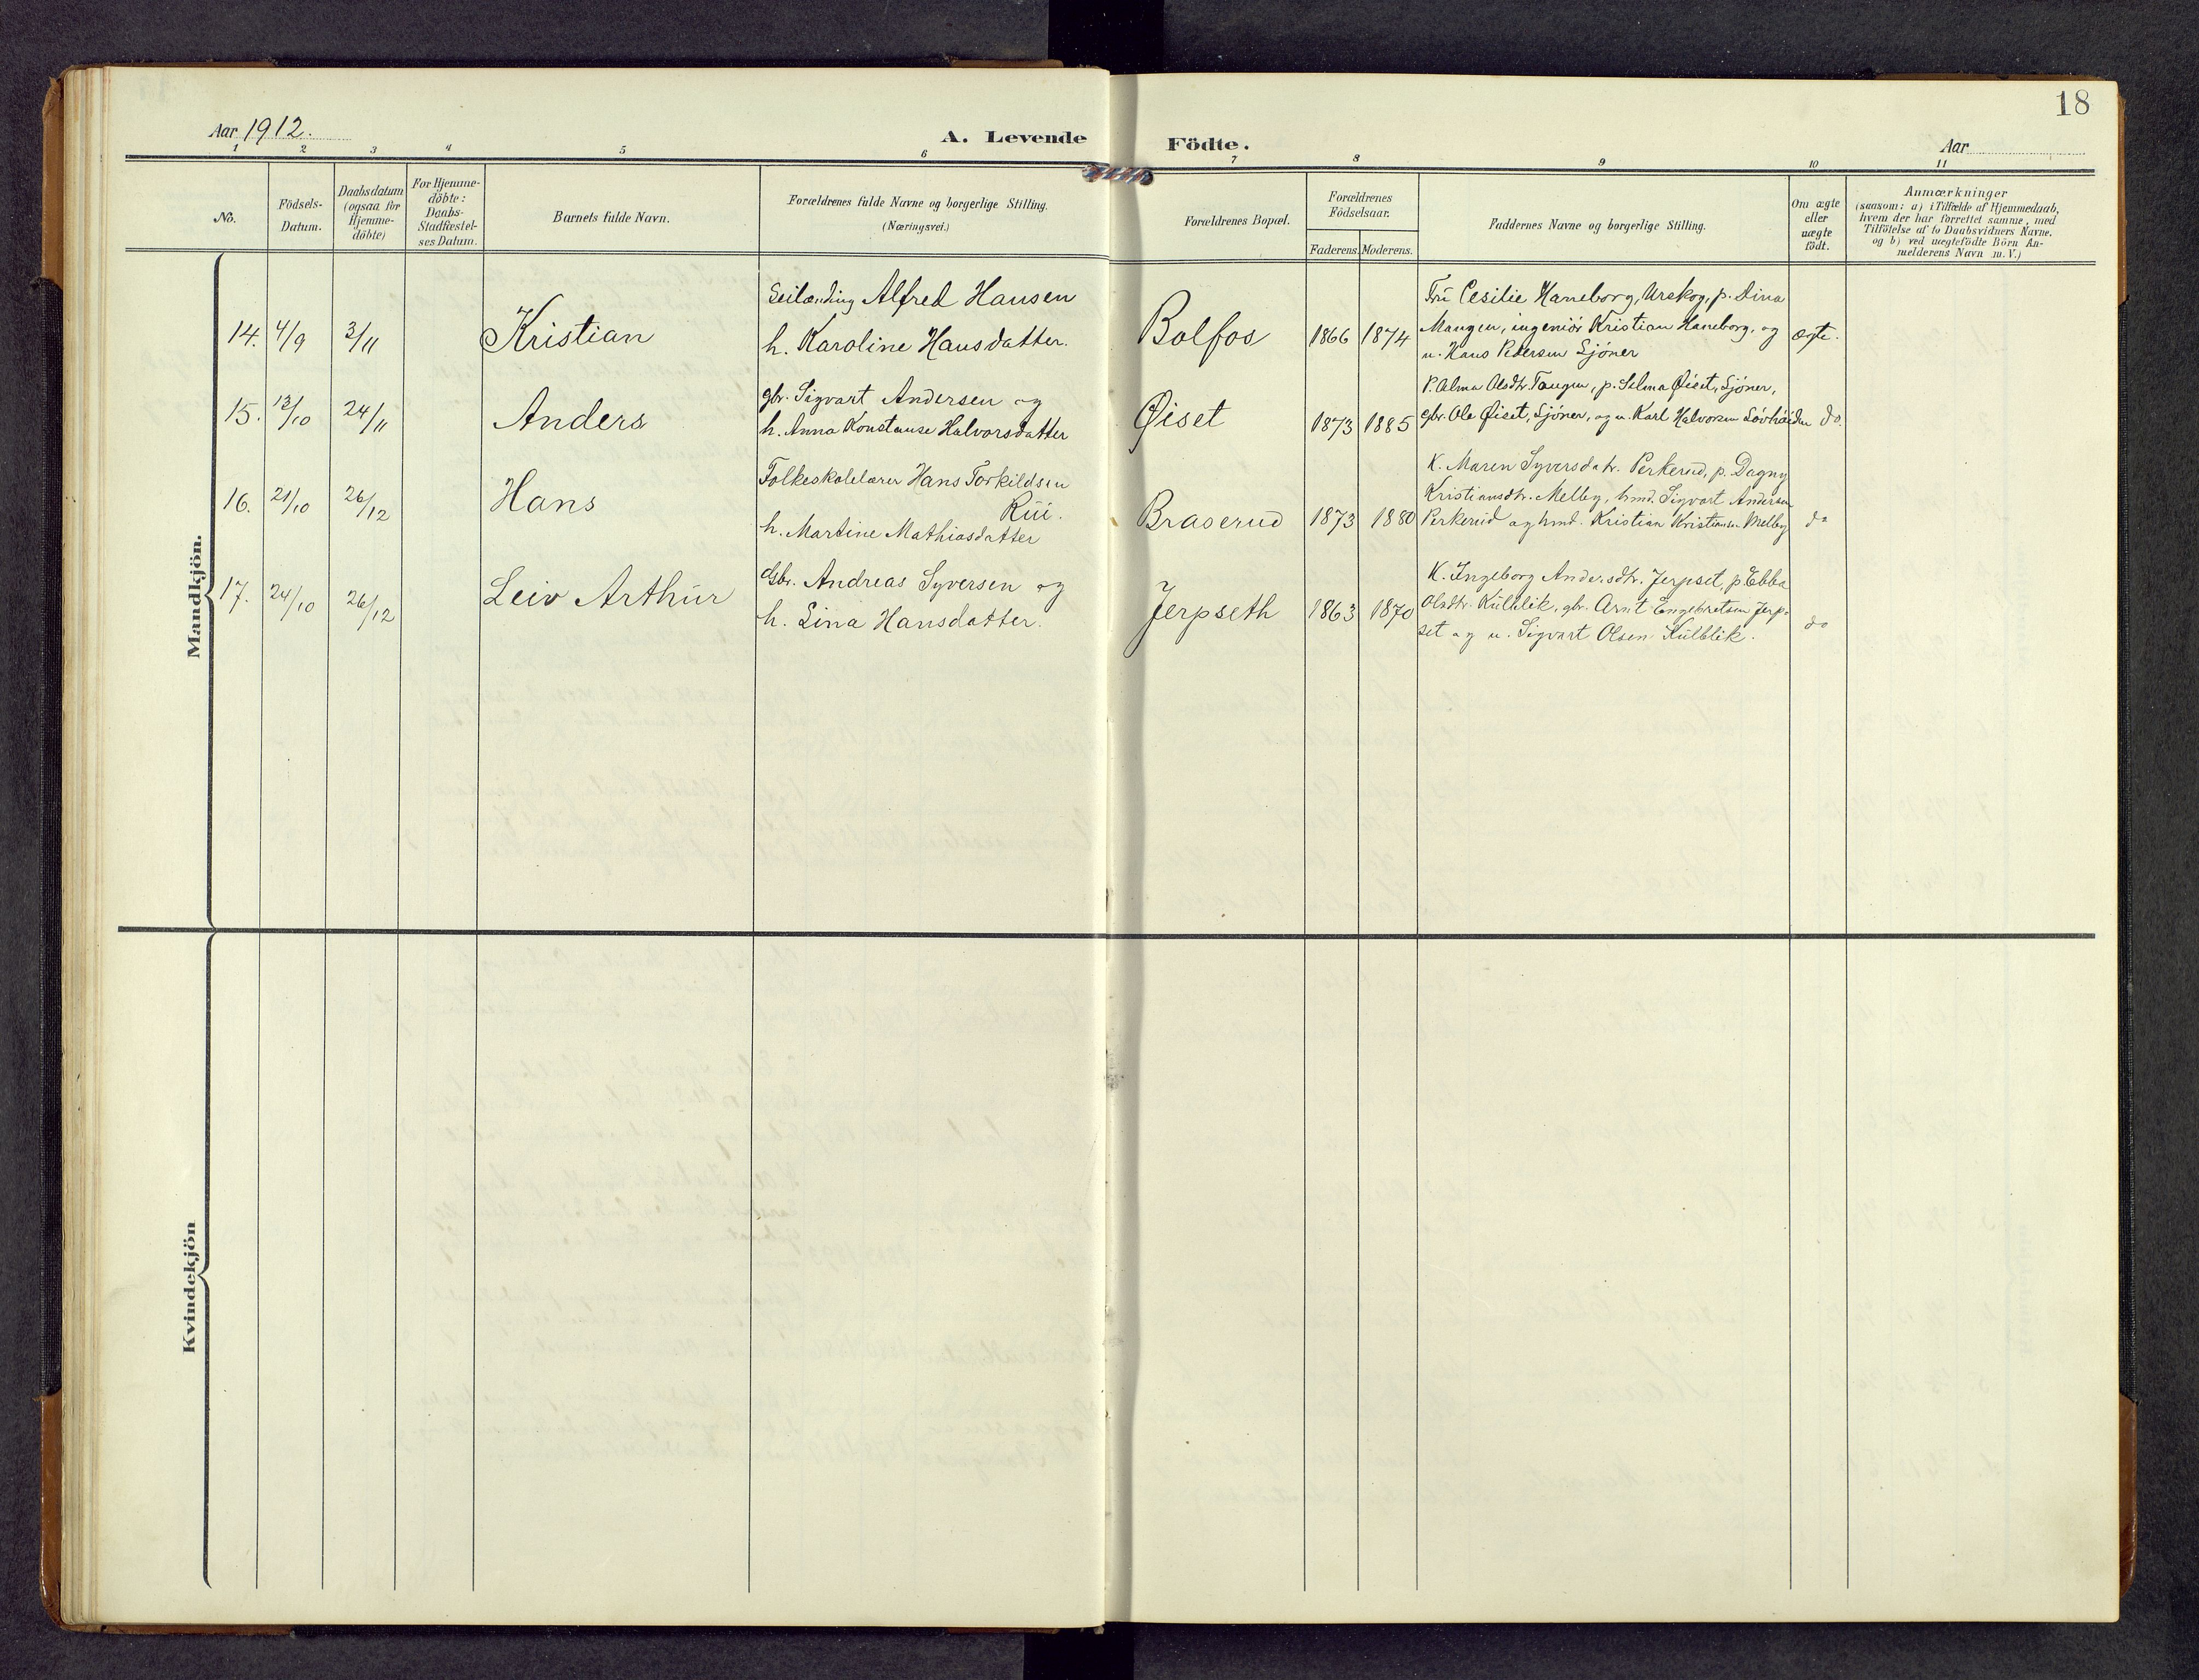 18
Aar 1912.
A. Levende Födte.
Aar
1 2 3 4 5 6 7 8 9 10 11
No.
Födsels-
Datum.
Daabsdatum
(ogsaa for
Hjemme-
döbte)
For Hjemme-
döbte:
Daabs-
Stadfæstel-
ses Datum.
Barnets fulde Navn.
Forældrenes fulde Navne og borgerlige Stilling.
(Næringsvei.)
Forældrenes Bopæl.
Forældrenes
Födselsaar.
Faderens. Moderens.
Faddernes Navne og borgerlige Stilling.
Om ægte
eller
uægte
födt.
Anmærkninger
(saasom: a) i Tilfælde af Hjemmedaab,
hvem der har forrettet samme, med
Tilföielse af to Daabsvidners Navne.
og b) ved uægtefödte Börn An-
melderens Navn m.V.)
Mandkjön.
14. 4/9 3/11
Kristian
Alfred Hansen
h. Karoline Hansdatter.
Bolfos
1866 1874
Frü Cesilie Haneborg, Urskog, p. Dina
Mangen, ingeniör Kristian Haneborg, og
u. Hans Pedersen Sjöner
ægte.
15. 13/10 24/11
Anders
gbr. Sigvart Andersen og
h. Anna Konstanse Halvorsdatter
Øiset
1873 1885
P. Alma Olsdtr. Tangen, p. Selma Øiset, Sjöner,
gbr. Ole Øiset, Sjöner, og u. Karl Halvorsen Lövhöiden
do.
16. 21/10 26/12
Hans
Folkeskolelærer Hans Torkildsen
Rüi.
h. Martine Mathiasdatter
Braserüd
1873 1880
K. Maren Syversdatr. Perkerüd, p. Dagny
Kristiansdtr. Melby, hmd. Sigvart Andersen
Perkerüd og hmd. Kristian Kristiansen Melby
do
17. 24/10 26/12
Leiv Arthür
Gbr. Andreas Syversen og
h. Lina Hansdatter.
Jerpseth
1863 1870
K. Ingeborg Andersdtr. Jerpset, p. Ebba
Olsdtr. Külblik, gbr. Arnt Engebretsen Jerp-
set og u. Sigvart Olsen Külblik.
do
Kvindekjön